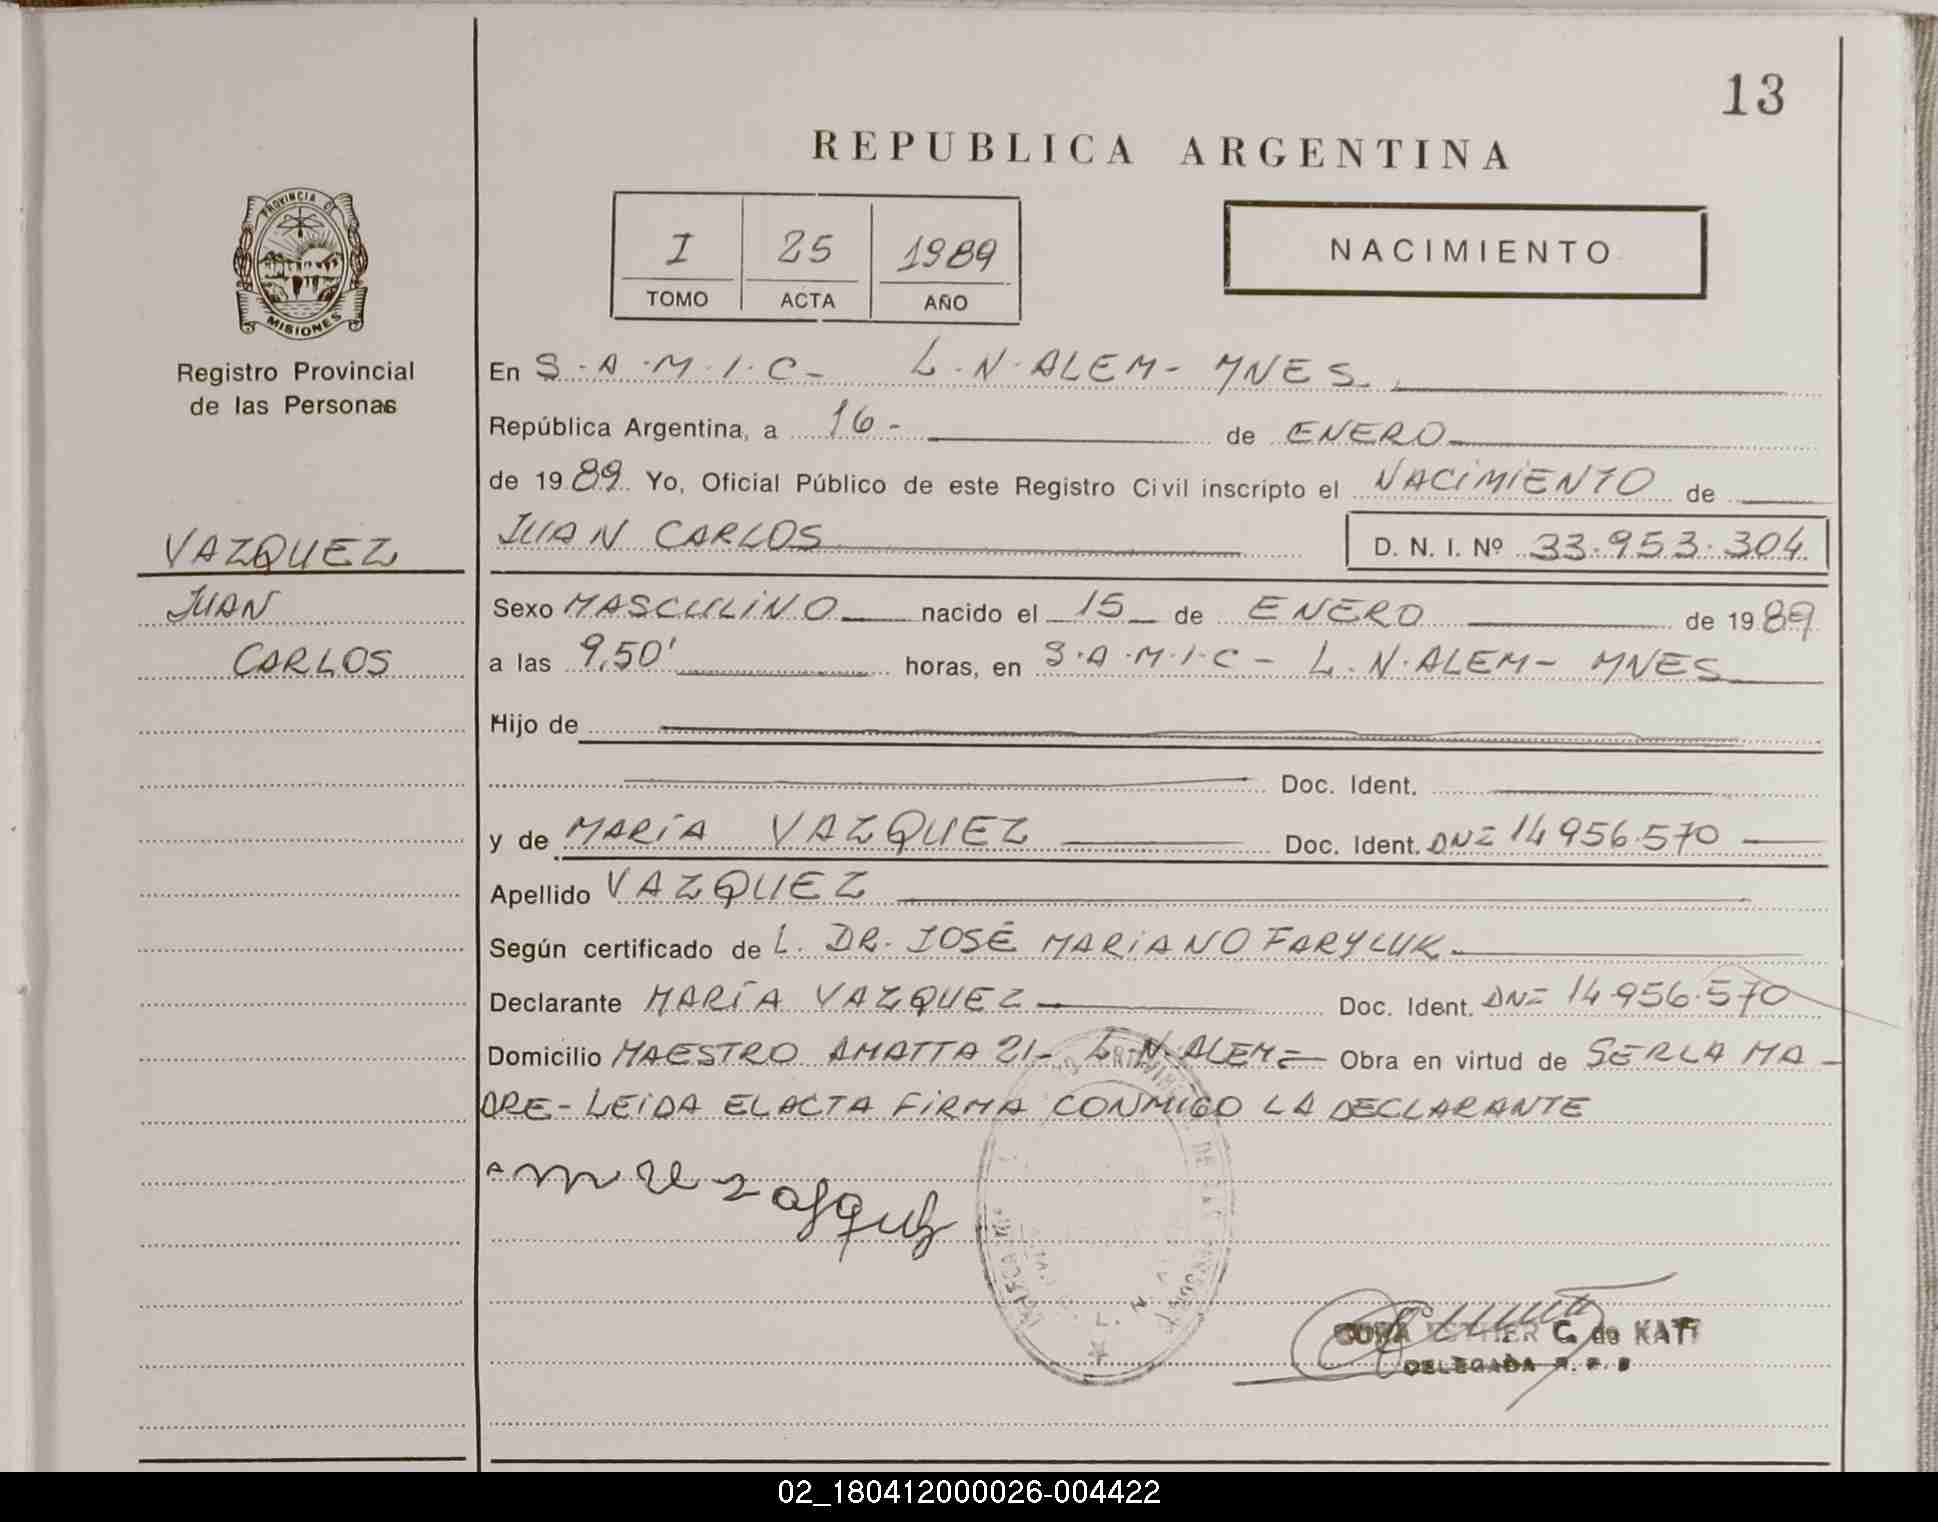 13
REPUBLICA ARGENTINA
PROVINCIA DE
MISIONES
Registro Provincial
de las Personas
I 25 1989
TOMO ACTA AÑO
NACIMIENTO
VAZQUEZ
JUAN
CARLOS
En S.A.M.I.C- L.N.ALEM- MNES
República Argentina, a 16- de ENERO
de 1989. Yo, Oficial Público de este Registro Civil inscripto el NACIMIENTO de
JUAN CARLOS D. N. I. Nº 33.953.304
Sexo MASCULINO nacido el 15 de ENERO de 1989
a las 9,50' horas, en S.A.M.I.C- L.N.ALEM- MNES
Hijo de
Doc. Ident.
y de MARÍA VAZQUEZ Doc. Ident. DN= 14956.570
Apellido VAZQUEZ
Según certificado de L. DR. JOSÉ MARIANO FARYLUK
Declarante MARÍA VAZQUEZ Doc. Ident. DN= 14.956.570
Domicilio MAESTRO AMATTA 21- L.N.ALEM= Obra en virtud de SER LA MA-
DRE- LEIDA EL ACTA FIRMA CONMIGO LA DECLARANTE
C. de
DELEGADA
02_180412000026-004422